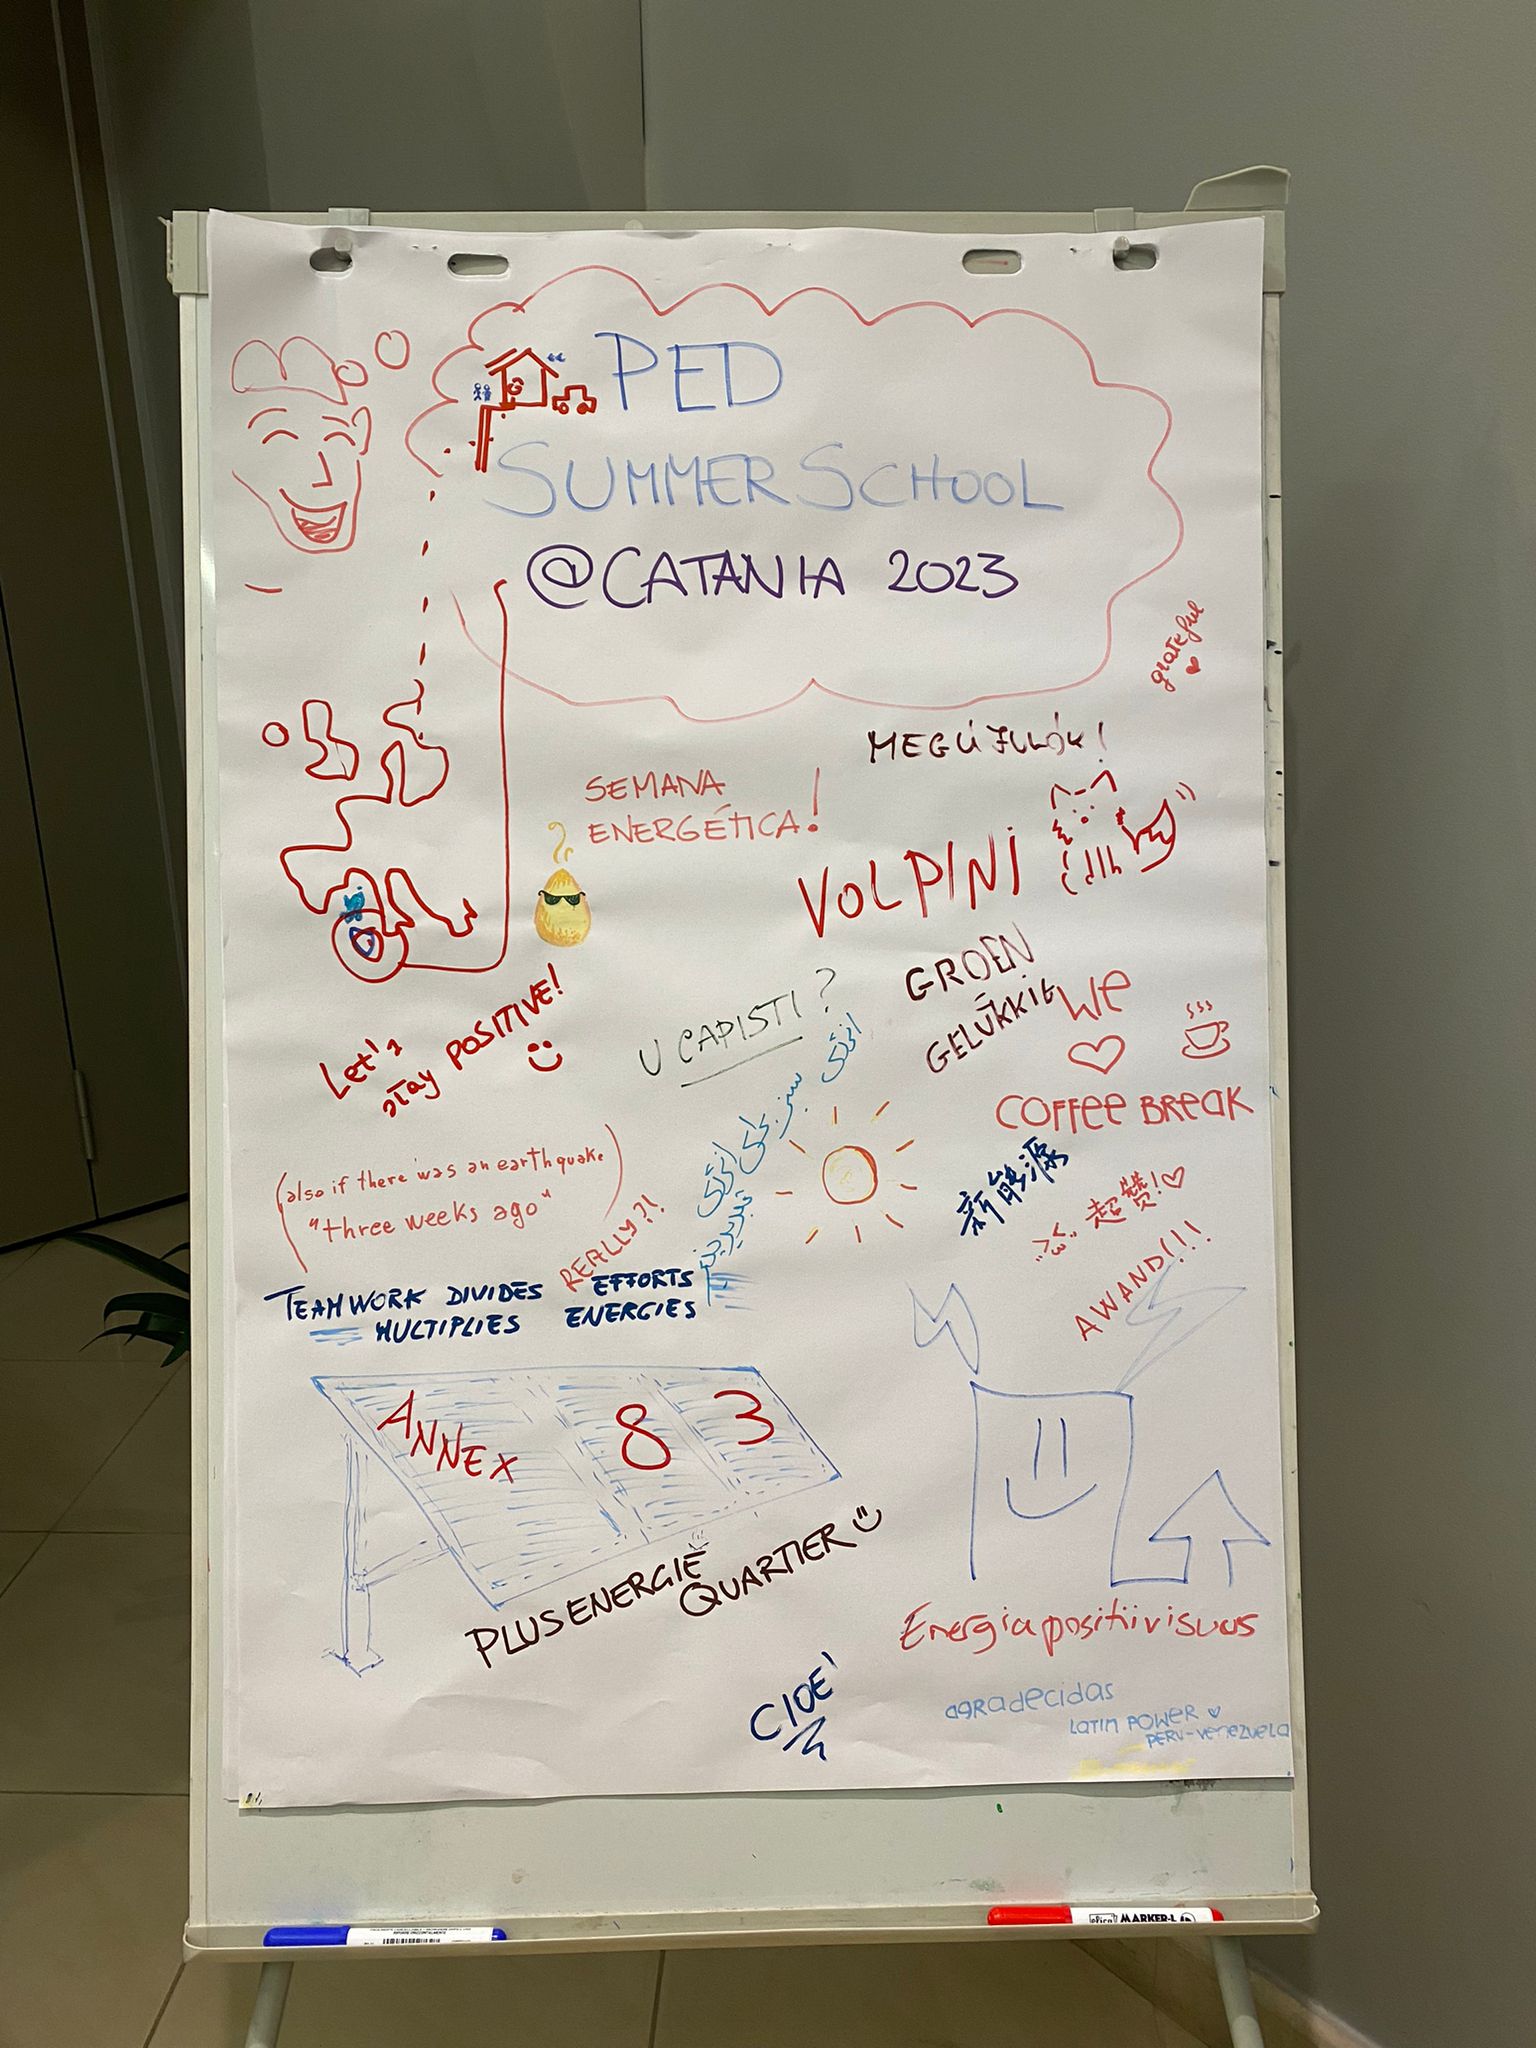 PED
SUMMER SCHOOL
@CATANIA 2023
grateful
MEGÚJULÓK!
SEMANA
ENERGÉTICA!
VOLPINI
GROEN
GELUKKIG
Let's
stay POSITIVE!
U CAPISTI?
We
COFFEE BREAK
انرژی سبز بجای انرژی
(also if there was an earthquake
"three weeks ago")
REALLY?!
新能源
超赞!
AWAND!!!
TEAMWORK DIVIDES EFFORTS
MULTIPLIES ENERGIES
ANNEX 83
PLUSENERGIE
QUARTIER
Energiapositiivisuus
CIOE'
agradecidas
LATIN POWER
PERU-Venezuela
MARKER-L